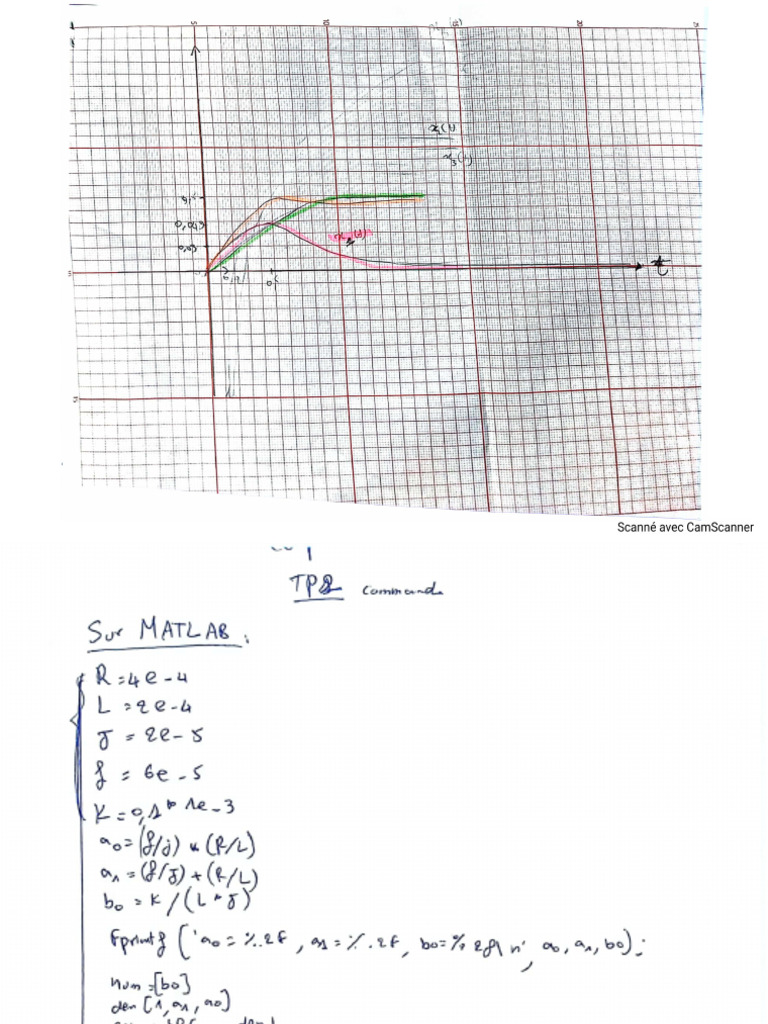 5
10
20
x₁(t)
x₃(t)
0,1
0,043
0,03
x₂(t)
t
0,19
Scanné avec CamScanner
TP2 command
Sur MATLAB :
R = 4e-4
L = 2e-4
J = 2e-5
f = 6e-5
K = 0,1 * 1e-3
a0 = (f/j) * (R/L)
a1 = (f/J) + (R/L)
b0 = K / (L * J)
Fprintf ('a0 = %.2f, a1 = %.2f, b0 = %.2f\n', a0, a1, b0);
num = [b0]
den [1, a1, a0]